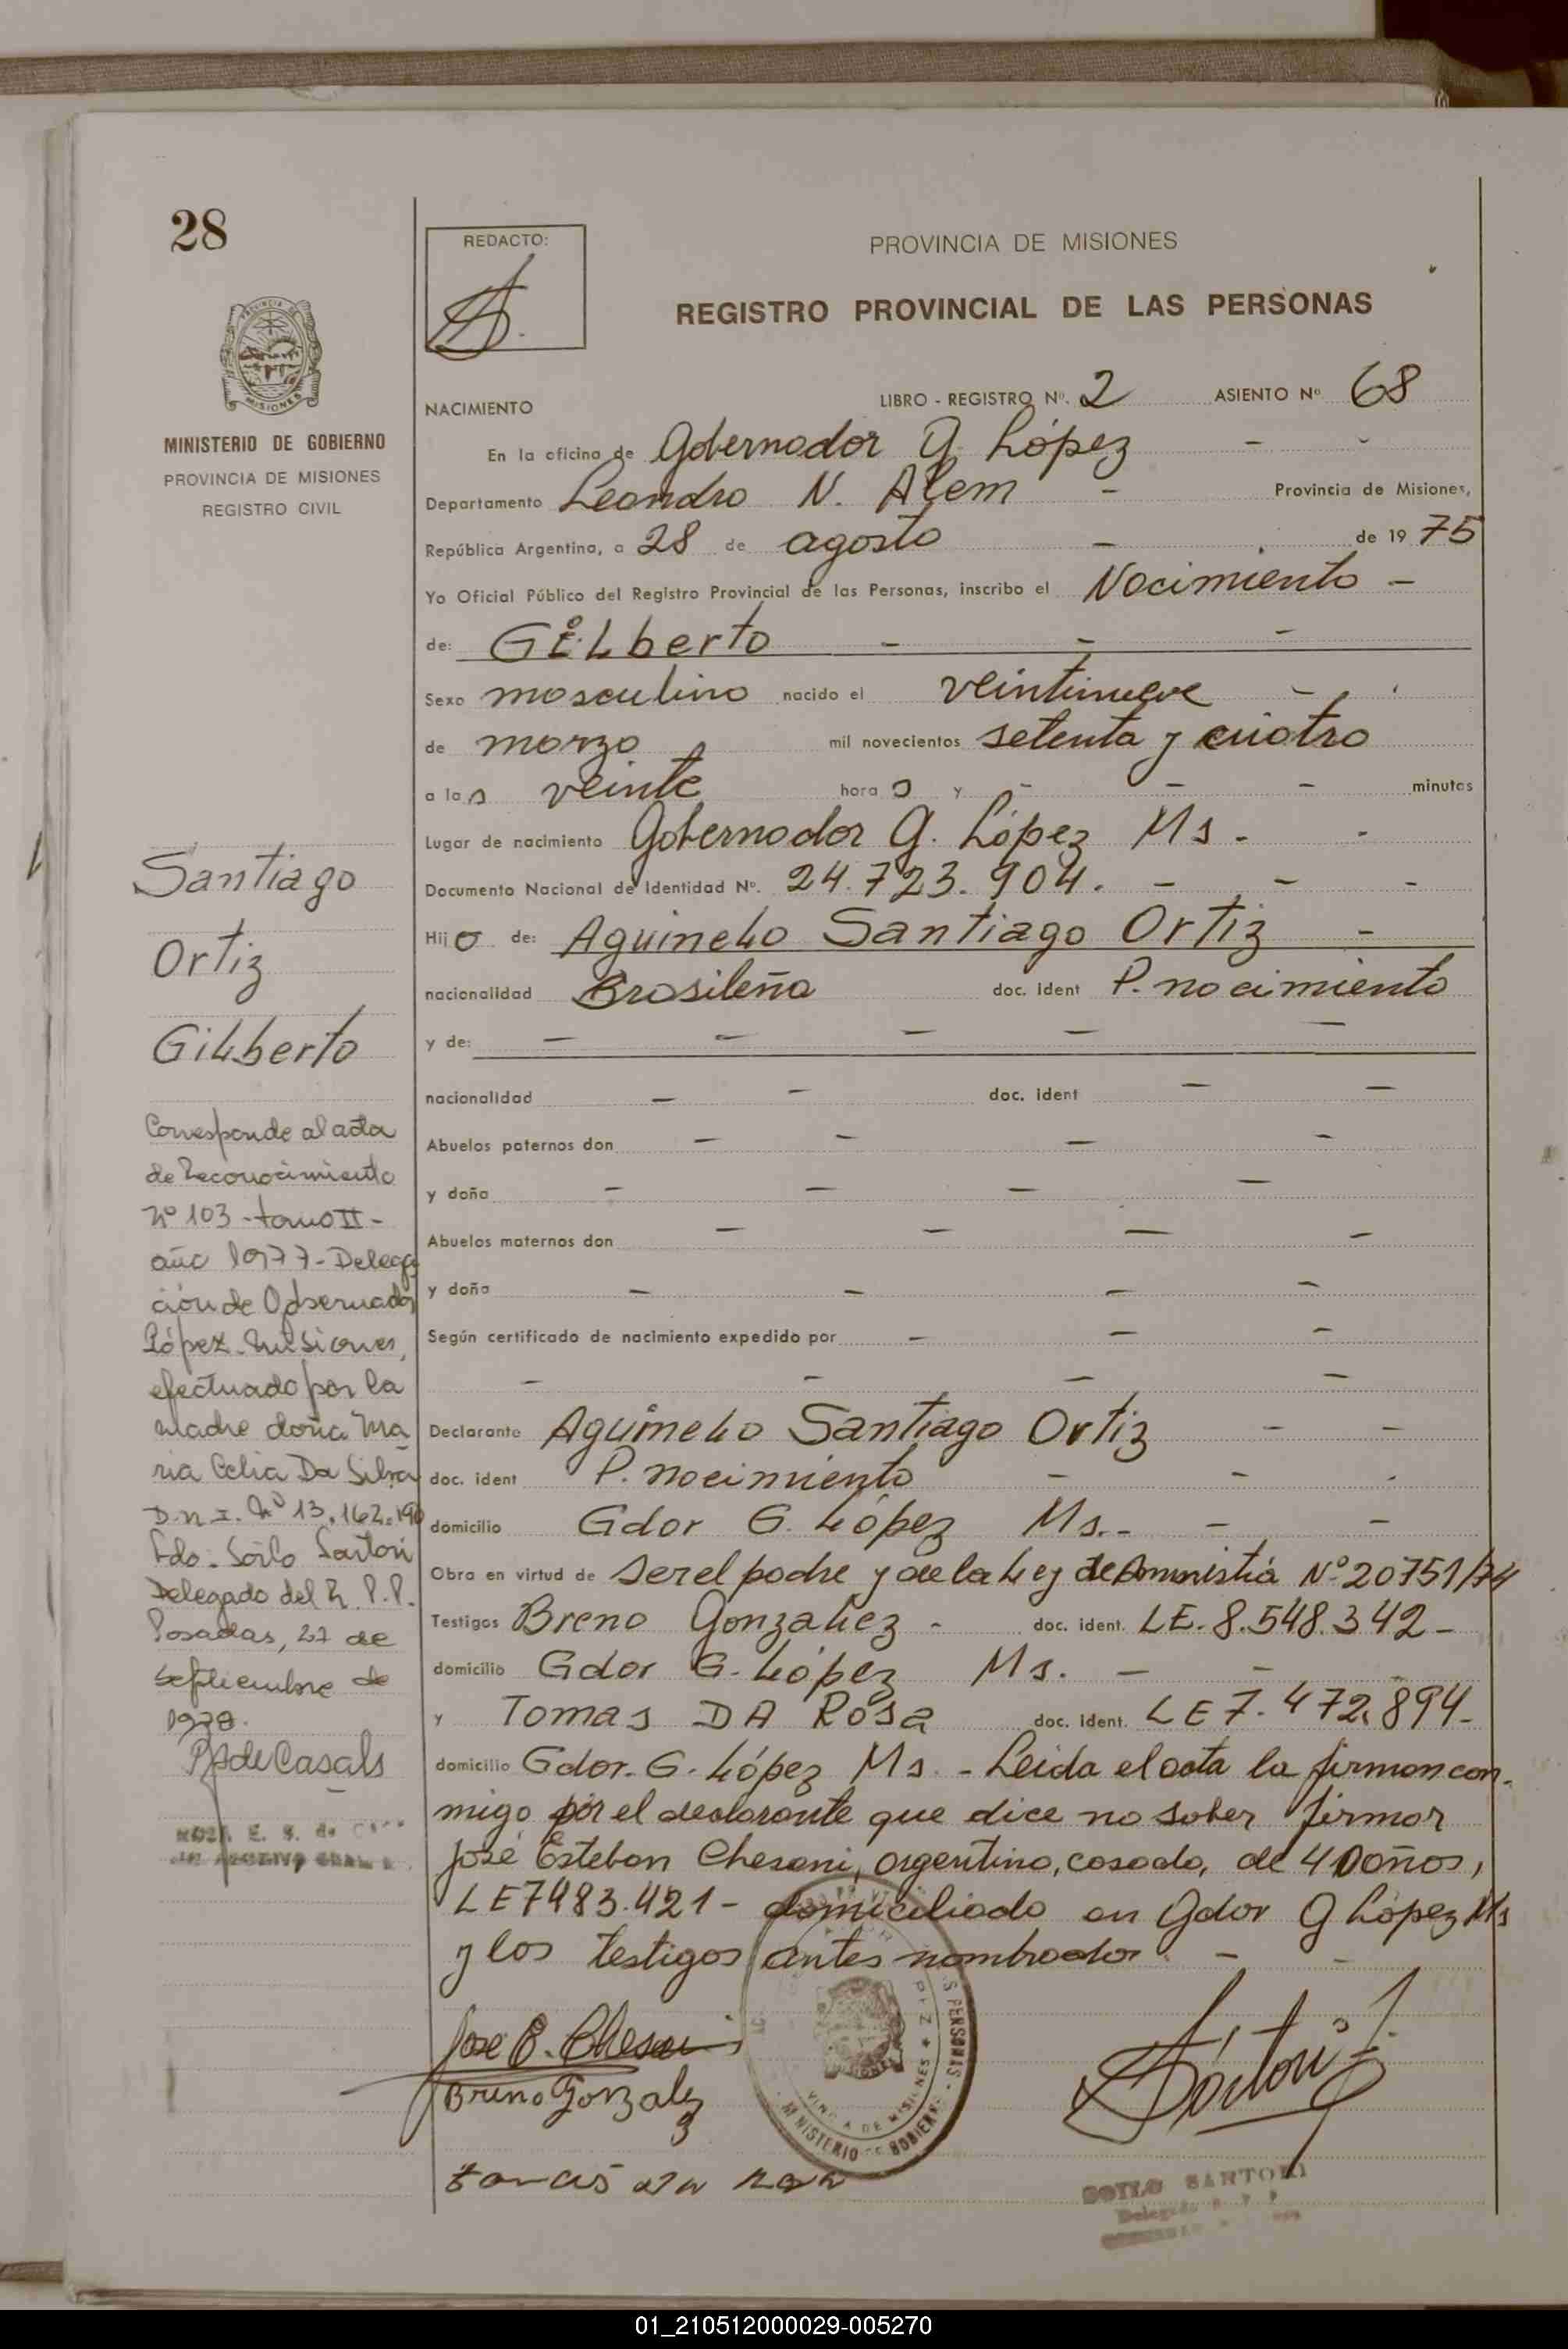 28
REDACTO:
PROVINCIA DE MISIONES
REGISTRO PROVINCIAL DE LAS PERSONAS
MISIONES
MINISTERIO DE GOBIERNO
PROVINCIA DE MISIONES
REGISTRO CIVIL
NACIMIENTO LIBRO - REGISTRO Nº. 2 ASIENTO Nº 68
En la oficina de Gobernador G. López -
Departamento Leandro N. Alem - Provincia de Misiones,
República Argentina, a 28 de agosto - de 19 75
Yo Oficial Público del Registro Provincial de las Personas, inscribo el Nacimiento -
de: GiLberto - - -
Sexo masculino nacido el veintinueve -
de marzo mil novecientos setenta y cuatro
a las veinte horas y - - - minutos
Lugar de nacimiento Gobernador G. López Ms - -
Documento Nacional de Identidad Nº. 24.723.904. - - -
Hijo de: AguineLo Santiago Ortiz -
nacionalidad Brasileña doc. ident P. nacimiento
y de: - - - - -
nacionalidad - - doc. ident - -
Abuelos paternos don - - - -
y doña - - - -
Abuelos maternos don - - - -
y doña - - - -
Según certificado de nacimiento expedido por - - -
- - - -
Declarante AguineLo Santiago Ortiz - -
doc. ident P. nacimiento - -
domicilio Gdor G. López Ms.- - -
Obra en virtud de ser el padre y de la Ley de Amnistía Nº 20751/74
Testigos Breno GonzaLez - doc. ident. LE. 8.548.342 -
domicilio Gdor G. López Ms. - - -
y Tomas DA Rosa doc. ident. LE 7.472.894-
domicilio Gdor. G. López Ms - Leida el acta la firman con-
migo por el declarante que dice no saber firmar
José Esteban Chesani, argentino, casado, de 40 años,
LE 7483.421 - domiciliado en Gdor G López Ms
y los testigos antes nombrados - -
Santiago
Ortiz
GiLberto
Corresponde al acta
de Reconocimiento
Nº 103 - tomo II -
año 1977 - Delega
ción de Gobernador
López - Misiones,
efectuado por la
madre doña Ma
ria Celia Da Silva
D.N.I. Nº 13.162.190
Fdo. Soilo Sartori
Delegado del R. P. P.
Posadas, 27 de
septiembre de
PA de Casals
José E. Chesani
Breno Gonzalez
MINISTERIO DE GOBIERNO
SOILO SARTORI
Delegado R. P. P.
01_210512000029-005270